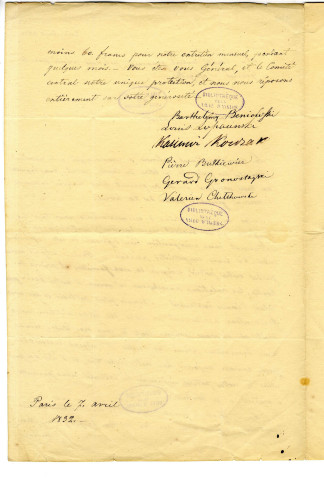 moins 60 francs pour notre entretien mensuel, pendant
quelques mois. – Vous êtes vous Général, et le Comité
central notre unique protection, et nous nous reposons
entièrement sur votre générosité.
Barthelémy
Louis
Kasimir
Pierre Butkiewicz
Gerard Gronostayski
Valerien
BIBLIOTHEQUE
Paris le 7 avril
1832. –